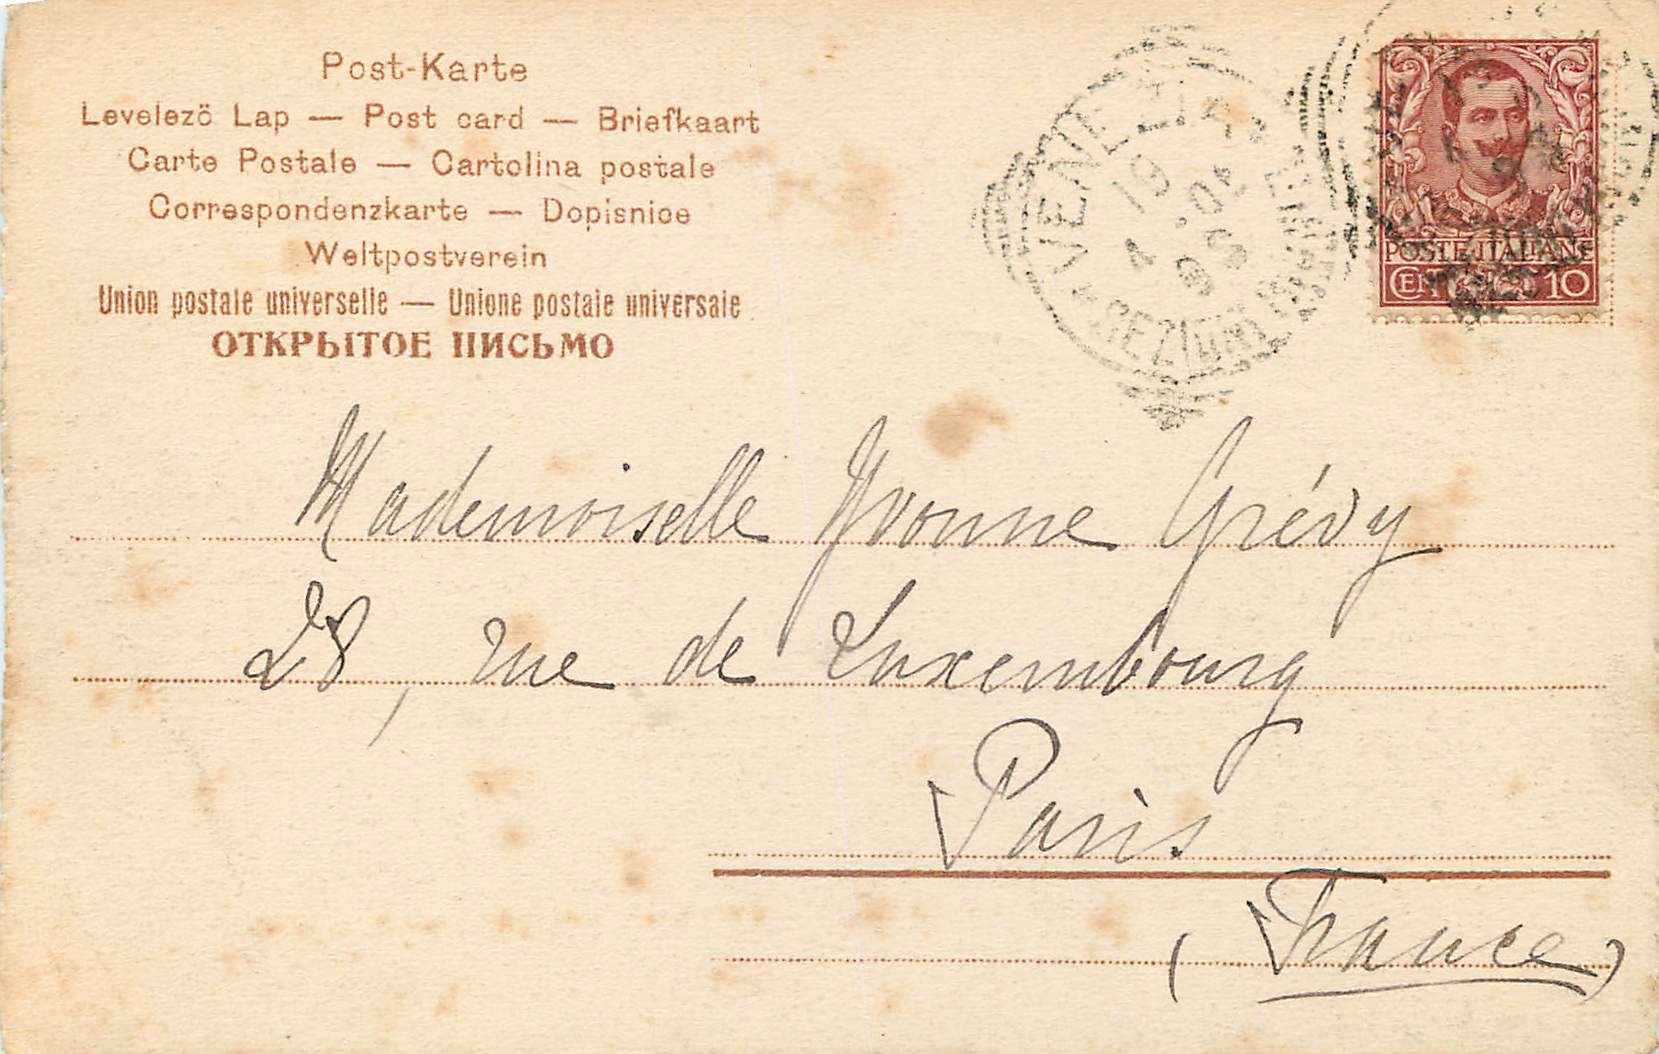 Post-Karte
Levelezö Lap — Post card — Briefkaart
Carte Postale — Cartolina postale
Correspondenzkarte — Dopisnice
Weltpostverein
Union postale universelle — Unione postale universale
ОТКРЫТОЕ ПИСЬМО
VENEZIA
19
4 .04
SEZIONI
POSTE ITALIANE
CEN 10
Mademoiselle Yvonne Grévy
28, rue de Luxembourg
Paris
(France)